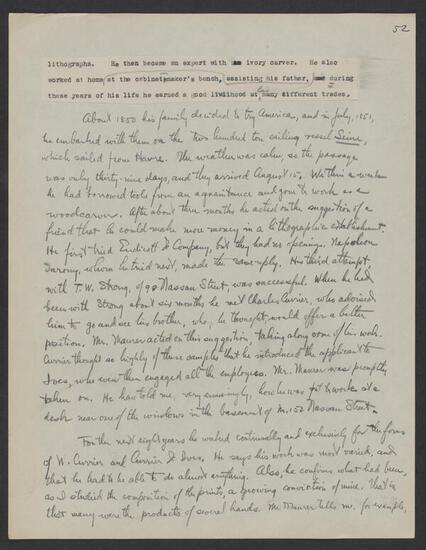 52
lithographs. He then became an expert with an ivory carver. He also
worked at home at the cabinetmaker's bench, assisting his father, and during
these years of his life he earned a good livlihood at many different trades.
About 1850 his family decided to try America, and in July, 1851,
he embarked with them on the two hundred ton sailing vessel Seine,
which sailed from Havre. The weather was calm, so the passage
was only thirty-nine days, and they arrived August 15. Within a week
he had borrowed tools from an aquaintance and gone to work as a
woodcarver. After about three months he acted on the suggestion of a
friend that he could make more money in a lithographic establishment.
He first tried Endicott & Company, but they had no openings. Napoleon
Sarony, whom he tried next, made the same reply. His third attempt,
with T. W. Strong, of 98 Nassau Street, was successful. When he had
been with Strong about six months he met Charles Currier, who advised
him to go and see his brother, who, he thought would offer a better
position. Mr. Maurer acted on this suggestion, taking along some of his work.
Currier thought so highly of these samples that he introduced the applicant to
Ives, who even then engaged all the employees. Mr. Maurer was promptly
taken on. He has told me, very amusingly, how he was put to work at a
desk near one of the windows in the basement of No. 152 Nassau Street.
For the next eight years he worked continually and exclusively for the firms
of N. Currier and Currier & Ives. He says his work was most varied, and
that he had to be able to do almost anything. Also, he confirms what had been,
as I studied the composition of the prints, a growing conviction of mine. That is
that many were the products of several hands. Mr. Maurer tells me, for example,